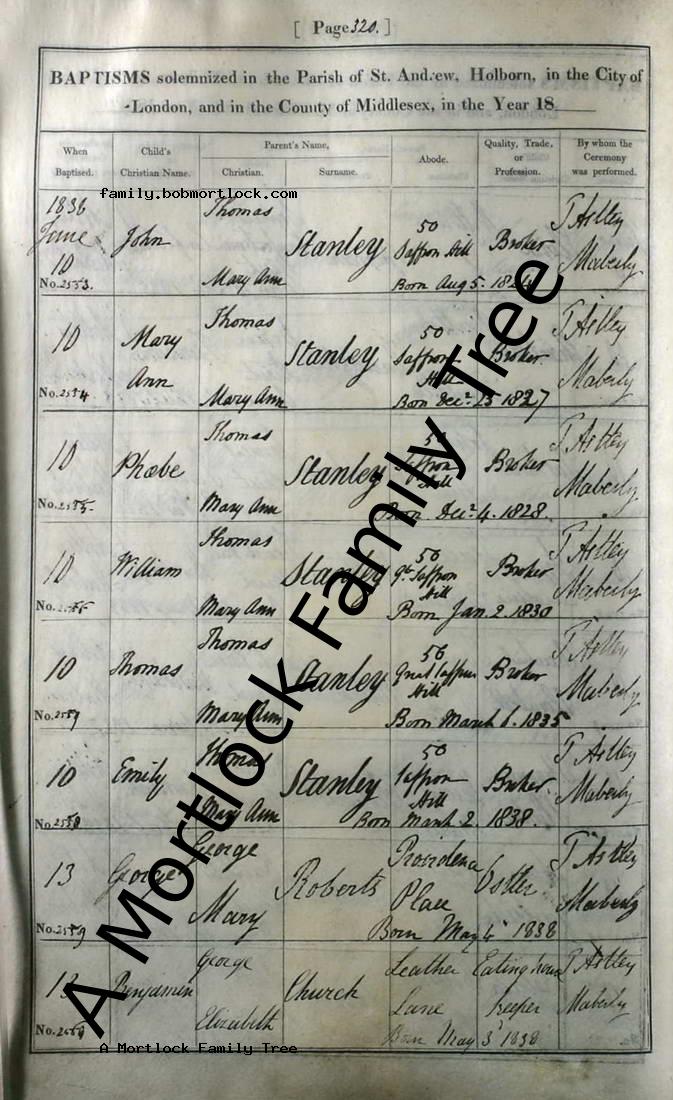 [ Page 320. ]
BAPTISMS solemnized in the Parish of St. Andrew, Holborn, in the City of
London, and in the County of Middlesex, in the Year 18
When Baptised. Child's Christian Name. Parent's Name, Christian. Surname. Abode. Quality, Trade, or Profession. By whom the Ceremony was performed.
family.bobmortlock.com
1838 Thomas
June John Stanley 50 Saffron Hill Broker T Astley
10 Mary Ann Maberly
No. 2553. Born Aug 5. 1824
10 Mary Thomas Stanley 50 Saffron Broker T Astley
Ann Mary Ann Hill Maberly
No. 2554 Born Decr 25 1827
10 Phœbe Thomas Stanley 50 Saffron Broker T Astley
Mary Ann Hill Maberly
No. 2555. Born Decr 4. 1828.
10 William Thomas Stanley 50 Gt Saffron Broker T Astley
Mary Ann Hill Maberly
No. 2556 Born Jan. 2. 1830
10 Thomas Thomas Stanley 50 Great Saffron Broker T Astley
Mary Ann Hill Maberly
No. 2557 Born March 6. 1835
10 Emily Thomas Stanley 50 Saffron Broker T Astley
Mary Ann Hill Maberly
No. 2558 Born March 2 1838.
13 George George Roberts Providence Ostler T Astley
Mary Place Maberly
No. 2559 Born May 4 1838
13 Benjamin George Church Leather Eating house T Astley
Elizabeth Lane keeper Maberly
No. 2560 Born May 3 1838
A Mortlock Family Tree
A Mortlock Family Tree